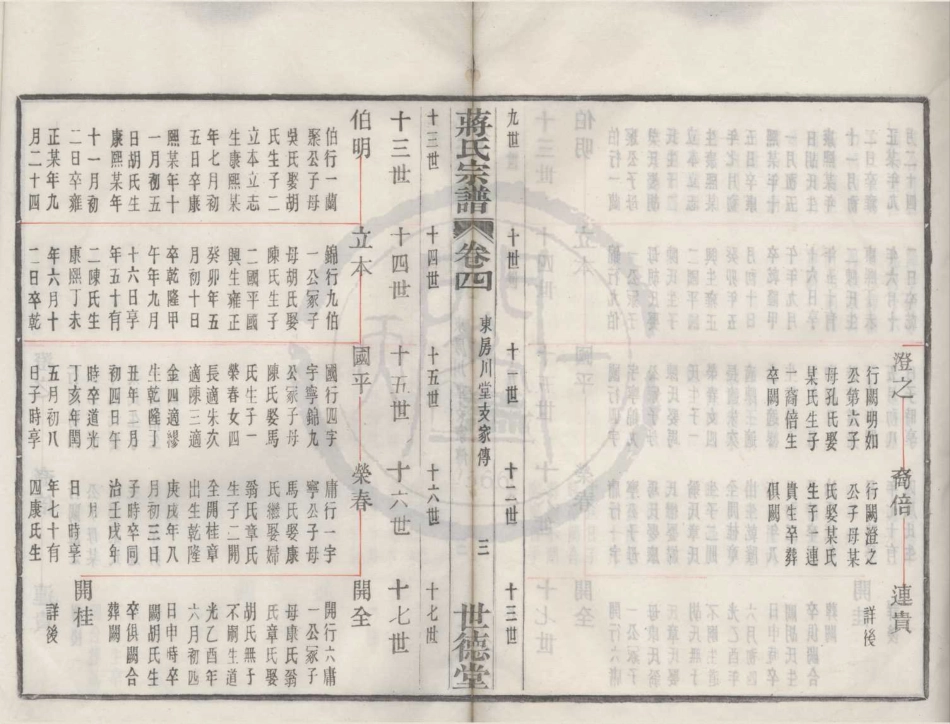 澄之
行闕明如
公第六子
母孔氏娶
某氏生子
一裔倍生
卒闕
裔倍
行闕澄之
公子母某
氏娶某氏
生子一連
貴生卒葬
俱闕
連貴
詳後
九世
十世
十一世
十二世
十三世
蔣氏宗譜
卷四
東房川堂支家傳
三
世德堂
十三世
十四世
十五世
十六世
十七世
十三世
十四世
十五世
十六世
十七世
伯明
伯行一蘭
聚公子母
吳氏娶胡
氏生子二
立本立志
生康熙某
年七月初
五日卒康
熙某年十
一月初五
日胡氏生
康熙某年
十一月初
二日卒雍
正某年九
月二十四
立本
錦行九伯
一公冢子
母胡氏娶
陳氏生子
二國平國
興生雍正
癸卯年五
月初十日
卒乾隆甲
午年九月
十六日享
年五十有
二陳氏生
康熙丁未
年六月十
二日卒乾
國平
國行四字
字寧錦九
公冢子母
陳氏娶馬
氏生子一
榮春女四
長適朱次
適陳三適
金四適謬
生乾隆丁
丑年二月
初四日午
時卒道光
丁亥年閏
五月初八
日子時享
榮春
庸行一字
寧公子母
馬氏娶康
氏繼娶婦
翁氏章氏
生子二開
全開桂章
出生乾隆
庚戌年八
月初三日
子時卒同
治壬戌年
月
日時享
年七十有
四康氏生
開全
開行六庸
一公冢子
母康氏翁
氏章氏娶
胡氏無于
不嗣生道
光乙酉年
六月初四
日申時卒
闕胡氏生
卒俱闕合
葬闕
開桂
詳後